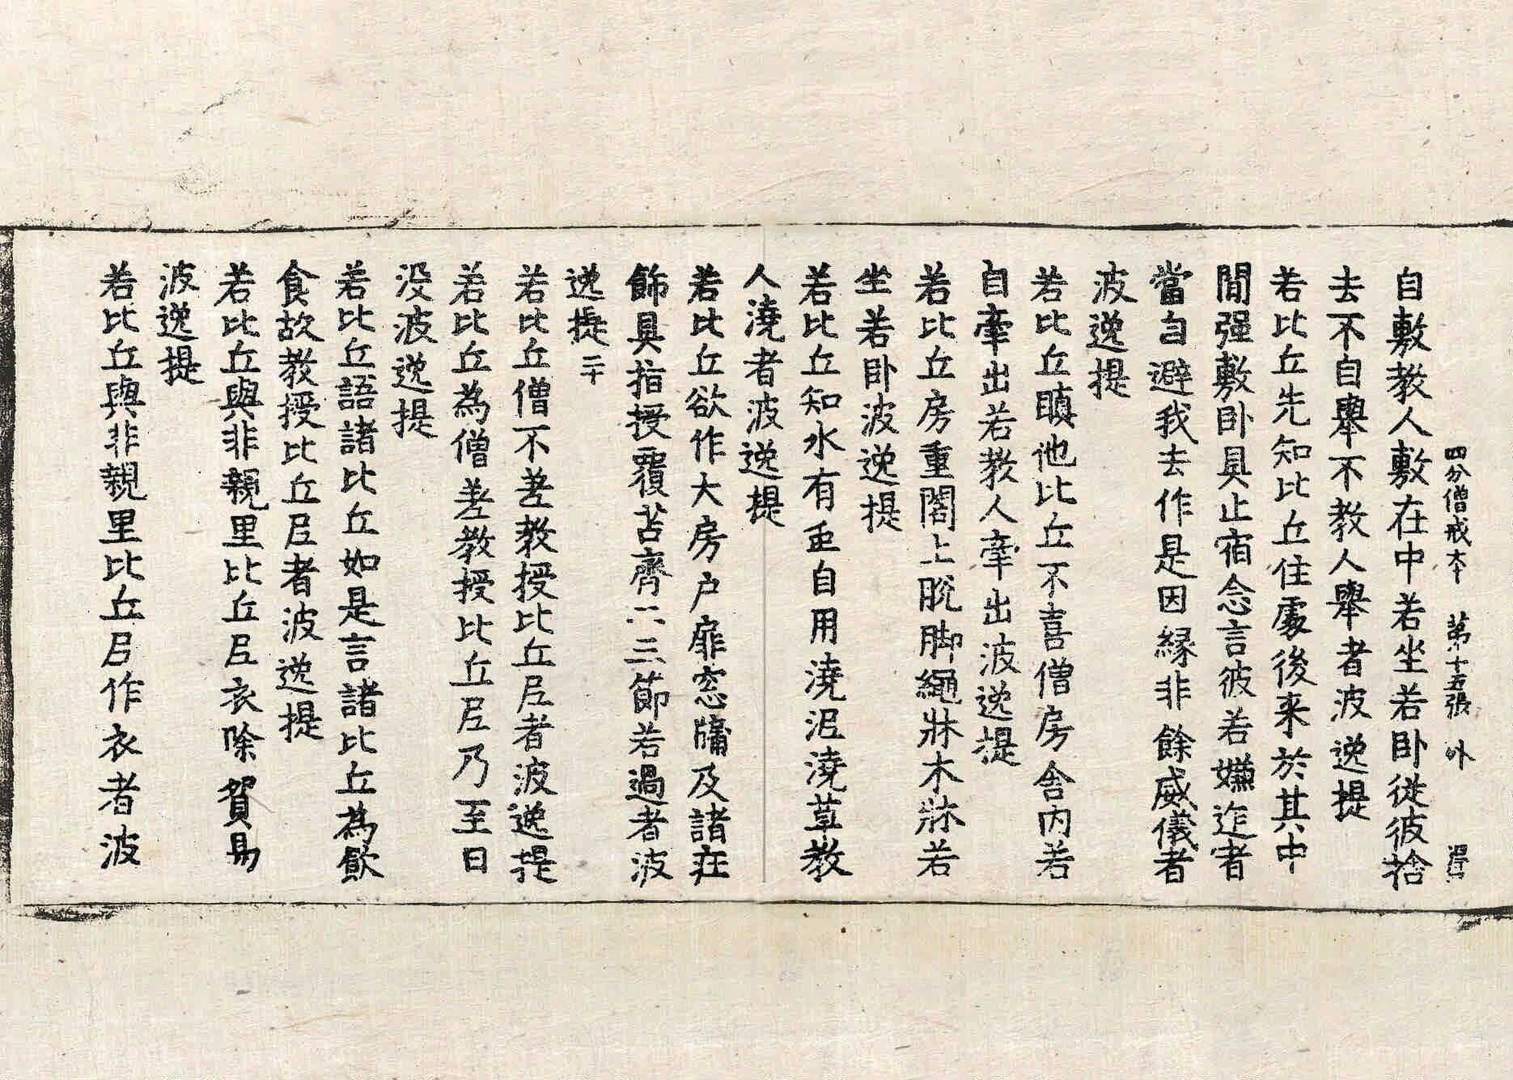 四分僧戒本　第十五張　外
自敷教人敷在中若坐若卧從彼捨
去不自舉不教人舉者波逸提
若比丘先知比丘住處後来於其中
間强敷卧具止宿念言彼若嫌迮者
當自避我去作是因緣非餘威儀者
波逸提
若比丘瞋他比丘不喜僧房舍内若
自牽出若教人牽出波逸提
若比丘房重閣上脫脚繩牀木牀若
坐若卧波逸提
若比丘知水有虫自用澆泥澆草教
人澆者波逸提
若比丘欲作大房户扉窓牖及諸庄
飾具指授覆苫齊二三節若過者波
逸提二十
若比丘僧不差教授比丘尼者波逸提
若比丘為僧差教授比丘尼乃至日
没波逸提
若比丘語諸比丘如是言諸比丘為飲
食故教授比丘尼者波逸提
若比丘與非親里比丘尼衣除貿易
波逸提
若比丘與非親里比丘尼作衣者波